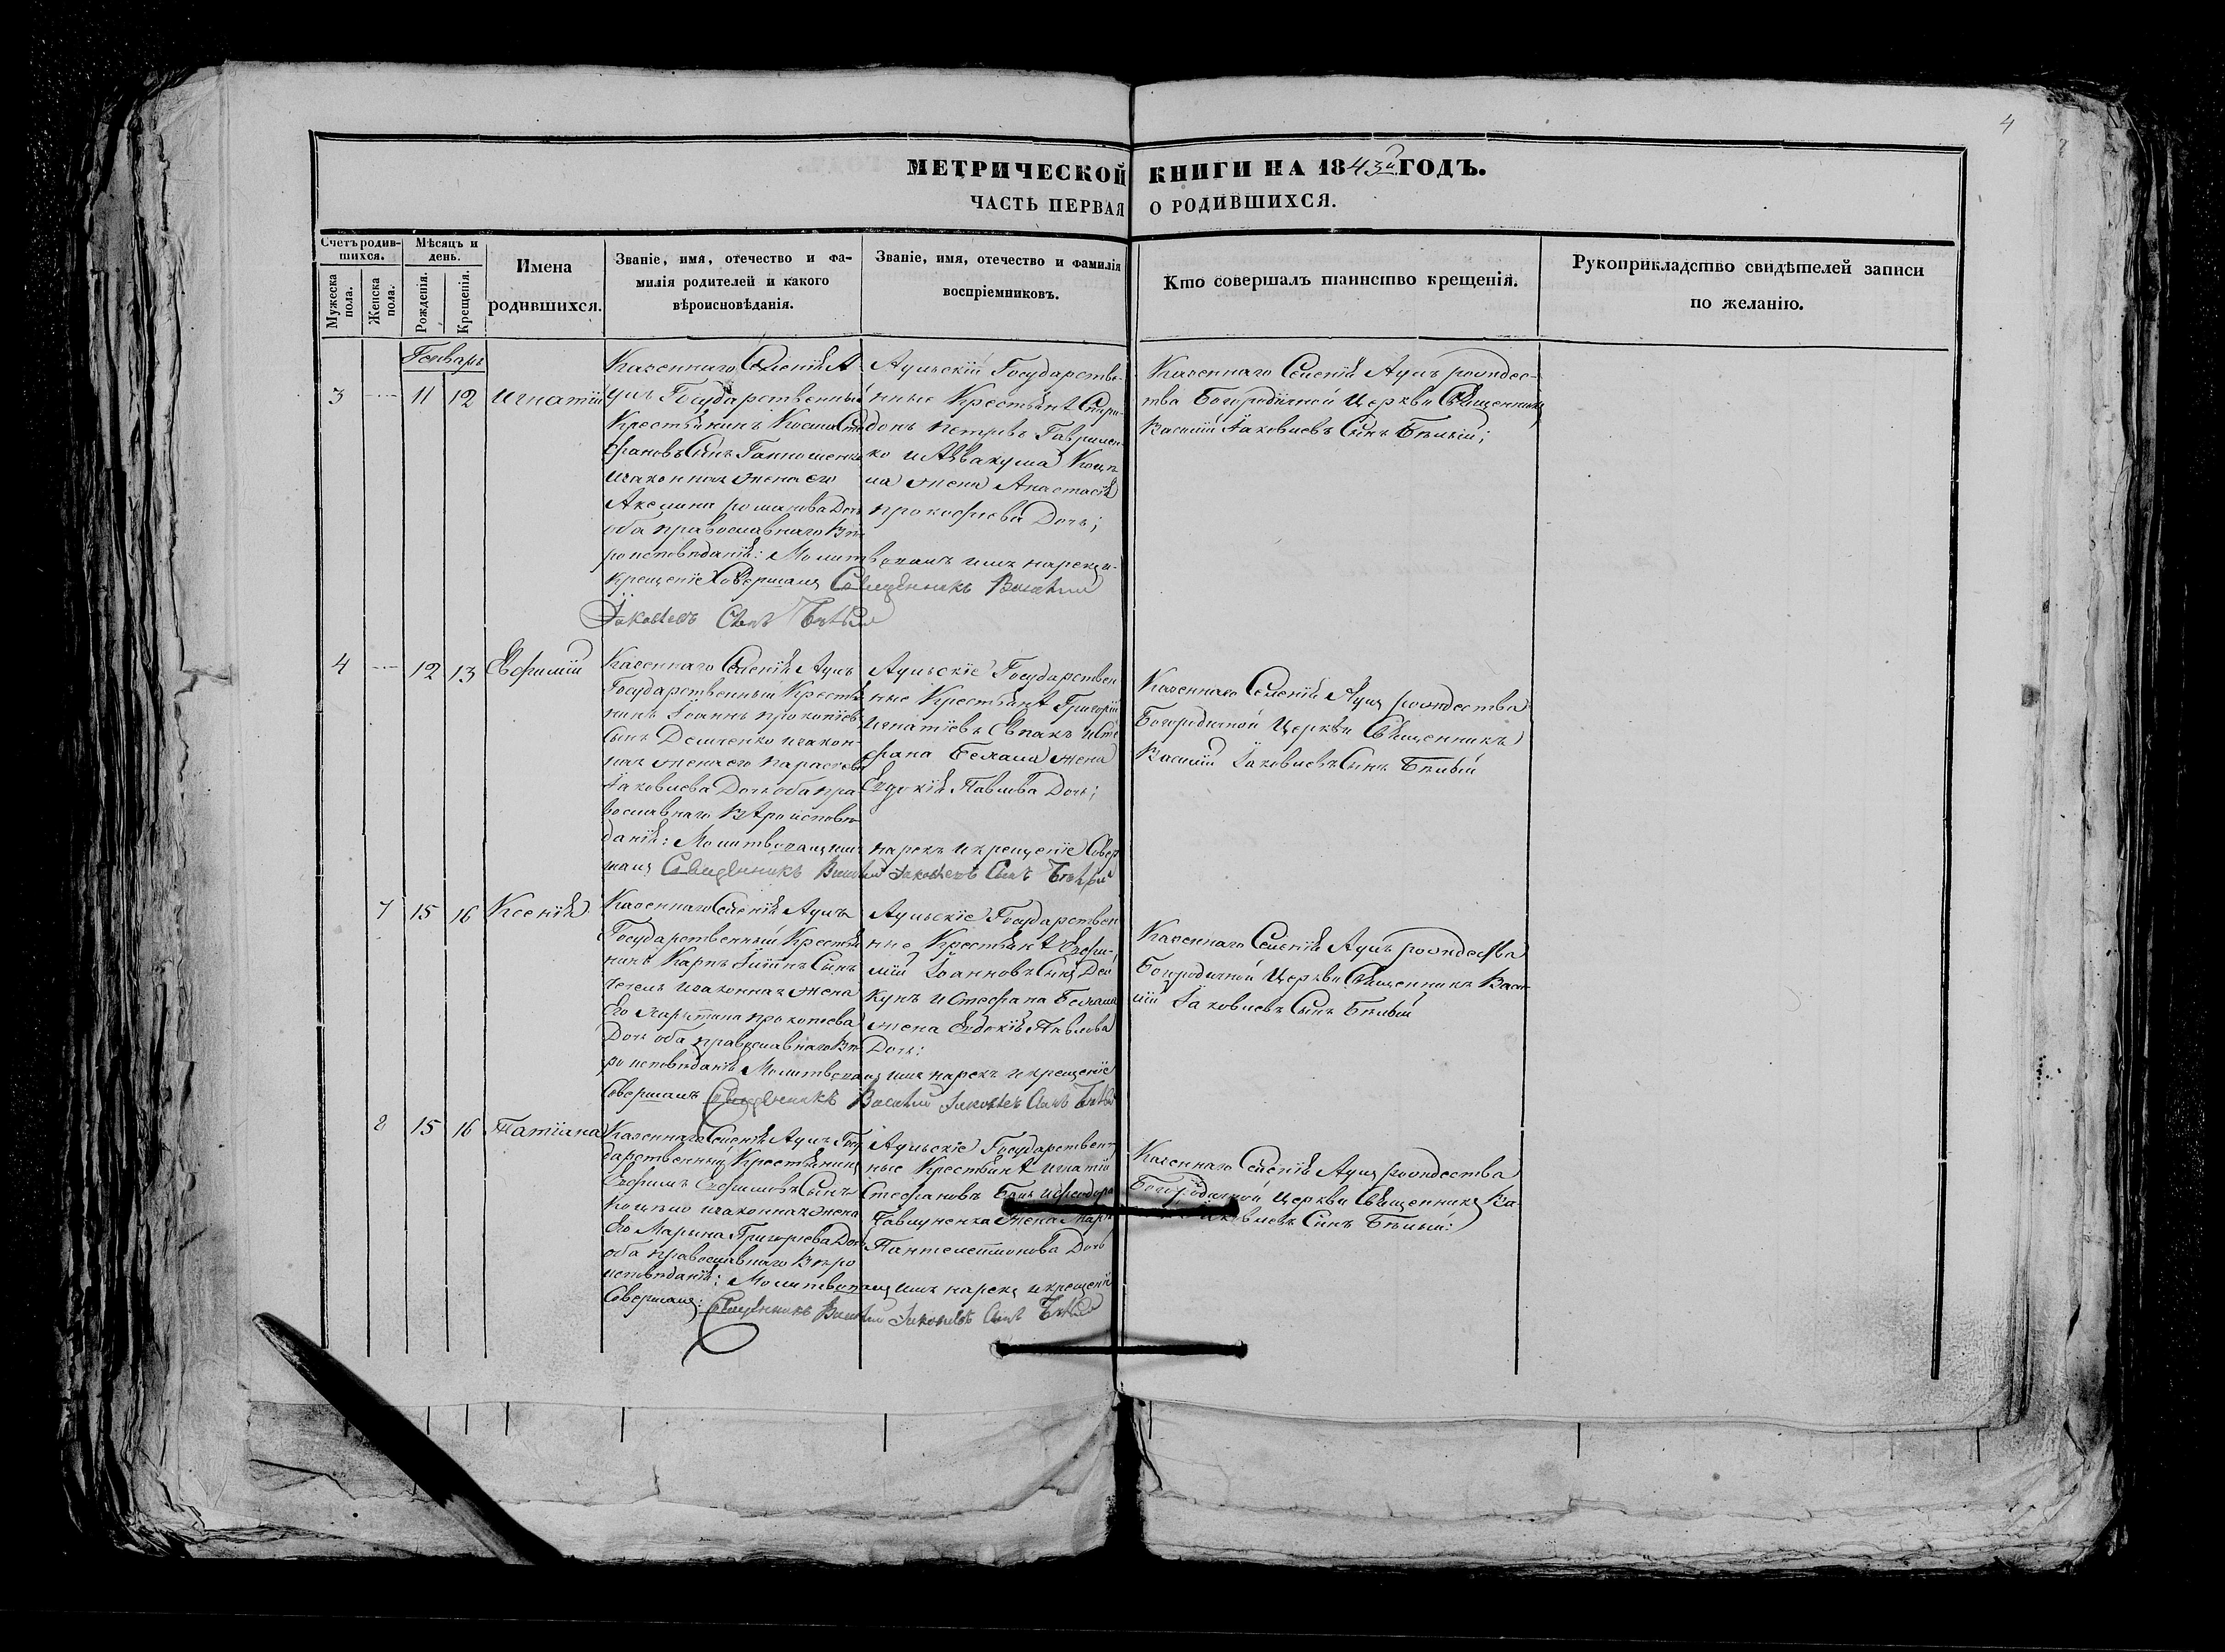 4
МЕТРИЧЕСКОЙ КНИГИ НА 1843й ГОДЪ.
ЧАСТЬ ПЕРВАЯ О РОДИВШИХСЯ.
Счетъ родившихся.
Мужеска пола.
Женска пола.
Мѣсяцъ и день.
Рожденія.
Крещенія.
Имена родившихся.
Званіе, имя, отечество и фамилія родителей и какого вѣроисповѣданія.
Званіе, имя, отечество и фамилія воспріемниковъ.
Кто совершалъ таинство крещенія.
Рукоприкладство свидѣтелей записи по желанію.
Генварь
3 11 12 Игнатій
Казеннаго Селенія А
улъ Государственный
Крестьянинъ Косма Сте
фановъ Сынъ
изаконная жена его
Акелина романова Дочь
оба православнаго Вѣ
роисповѣданія: Молитвовалъ имя нарекъ и
крещеніе Совершалъ Священникъ Василій
Іаковлевъ Сынъ Бѣлый
Аульскій Государстве
нные Крестьяне Спири
донъ Петровъ Гаврилен
ко и Аввакума
на жена Анастасія
прокофіева Дочь;
Казеннаго Селенія Аулъ рождес
тва Богородичной Церкви Священникъ
Василій Іаковлевъ Сынъ Бѣлый;
4 12 13 Евфимій
Казеннаго Селенія Аулъ
Государственный Крестья
нинъ Іоаннъ прокопіевъ
Сынъ Демченко изакон
ная жена его параскева
Іаковлева Дочь оба пра
вославнаго Вѣроисповѣ
данія: Молитвовалъ имя нарекъ и крещеніе Совер
шалъ Священникъ Василій Іаковлевъ Сынъ Бѣлый
Аульскіе Государствен
ные Крестьяне Григорій
Игнатіевъ и Сте
фана жена
Евдокія Павлова Дочь;
Казеннаго Селенія Аулъ рождества
Богородичной Церкви Священникъ
Василій Іаковлевъ Сынъ Бѣлый
1 15 16 Ксенія
Казеннаго Селенія Аулъ
Государственный Крестья
нинъ Карпъ Сынъ
изаконная жена
Его прокопіева
Дочь оба православнаго Вѣ
роисповѣданія Молитвовалъ имя нарекъ и крещеніе
Совершалъ Священникъ Василій Іаковлевъ Сынъ Бѣлый
Аульскіе Государствен
ные Крестьяне Евфи
мій Іоанновъ Сынъ Дей
кунъ и Стефана
жена Евдокія Павлова
Дочь:
Казеннаго Селенія Аулъ рождества
Богородичной Церкви Священникъ Васи
лій Іаковлевъ Сынъ Бѣлый
2 15 16 Татіана
Казеннаго Селенія Аулъ Госу
дарственный Крестьянинъ
Евфимъ Евфимовъ Сынъ
изаконная жена
Его Марьина Григорьева Дочь
оба православнаго Вѣро
исповѣданія: Молитвовалъ имя нарекъ и крещеніе
Совершалъ: Священникъ Василій Іаковлевъ Сынъ Бѣлый
Аульскіе Государствен
ные Крестьяне Игнатій
Стефановъ
жена
Пантелеимонова Дочь
Казеннаго Селенія Аулъ рождества
Богородичной Церкви Священникъ Ва
Іаковлевъ Сынъ Бѣлый: